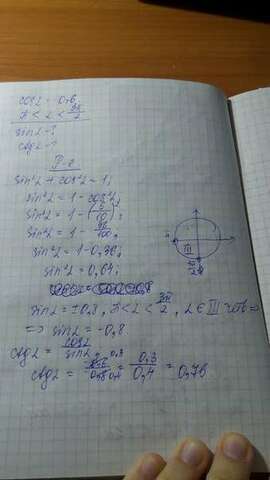 cosα = 0,6
π < α < 3π/2
sinα-?
ctgα-?
P-е
sin²α + cos²α = 1;
sin²α = 1 - cos²α
sin²α = 1 - (6/10)²;
sin²α = 1 - 36/100;
sin²α = 1 - 0,36;
sin²α = 0,64;
III
π
3π/2
sinα = ±0,8, π < α < 3π/2, α ∈ III четв ⇒
⇒ sinα = -0,8
ctgα = cosα/sinα
ctgα = 0,6 0,3/0,8 0,4 = 0,3/0,4 = 0,75